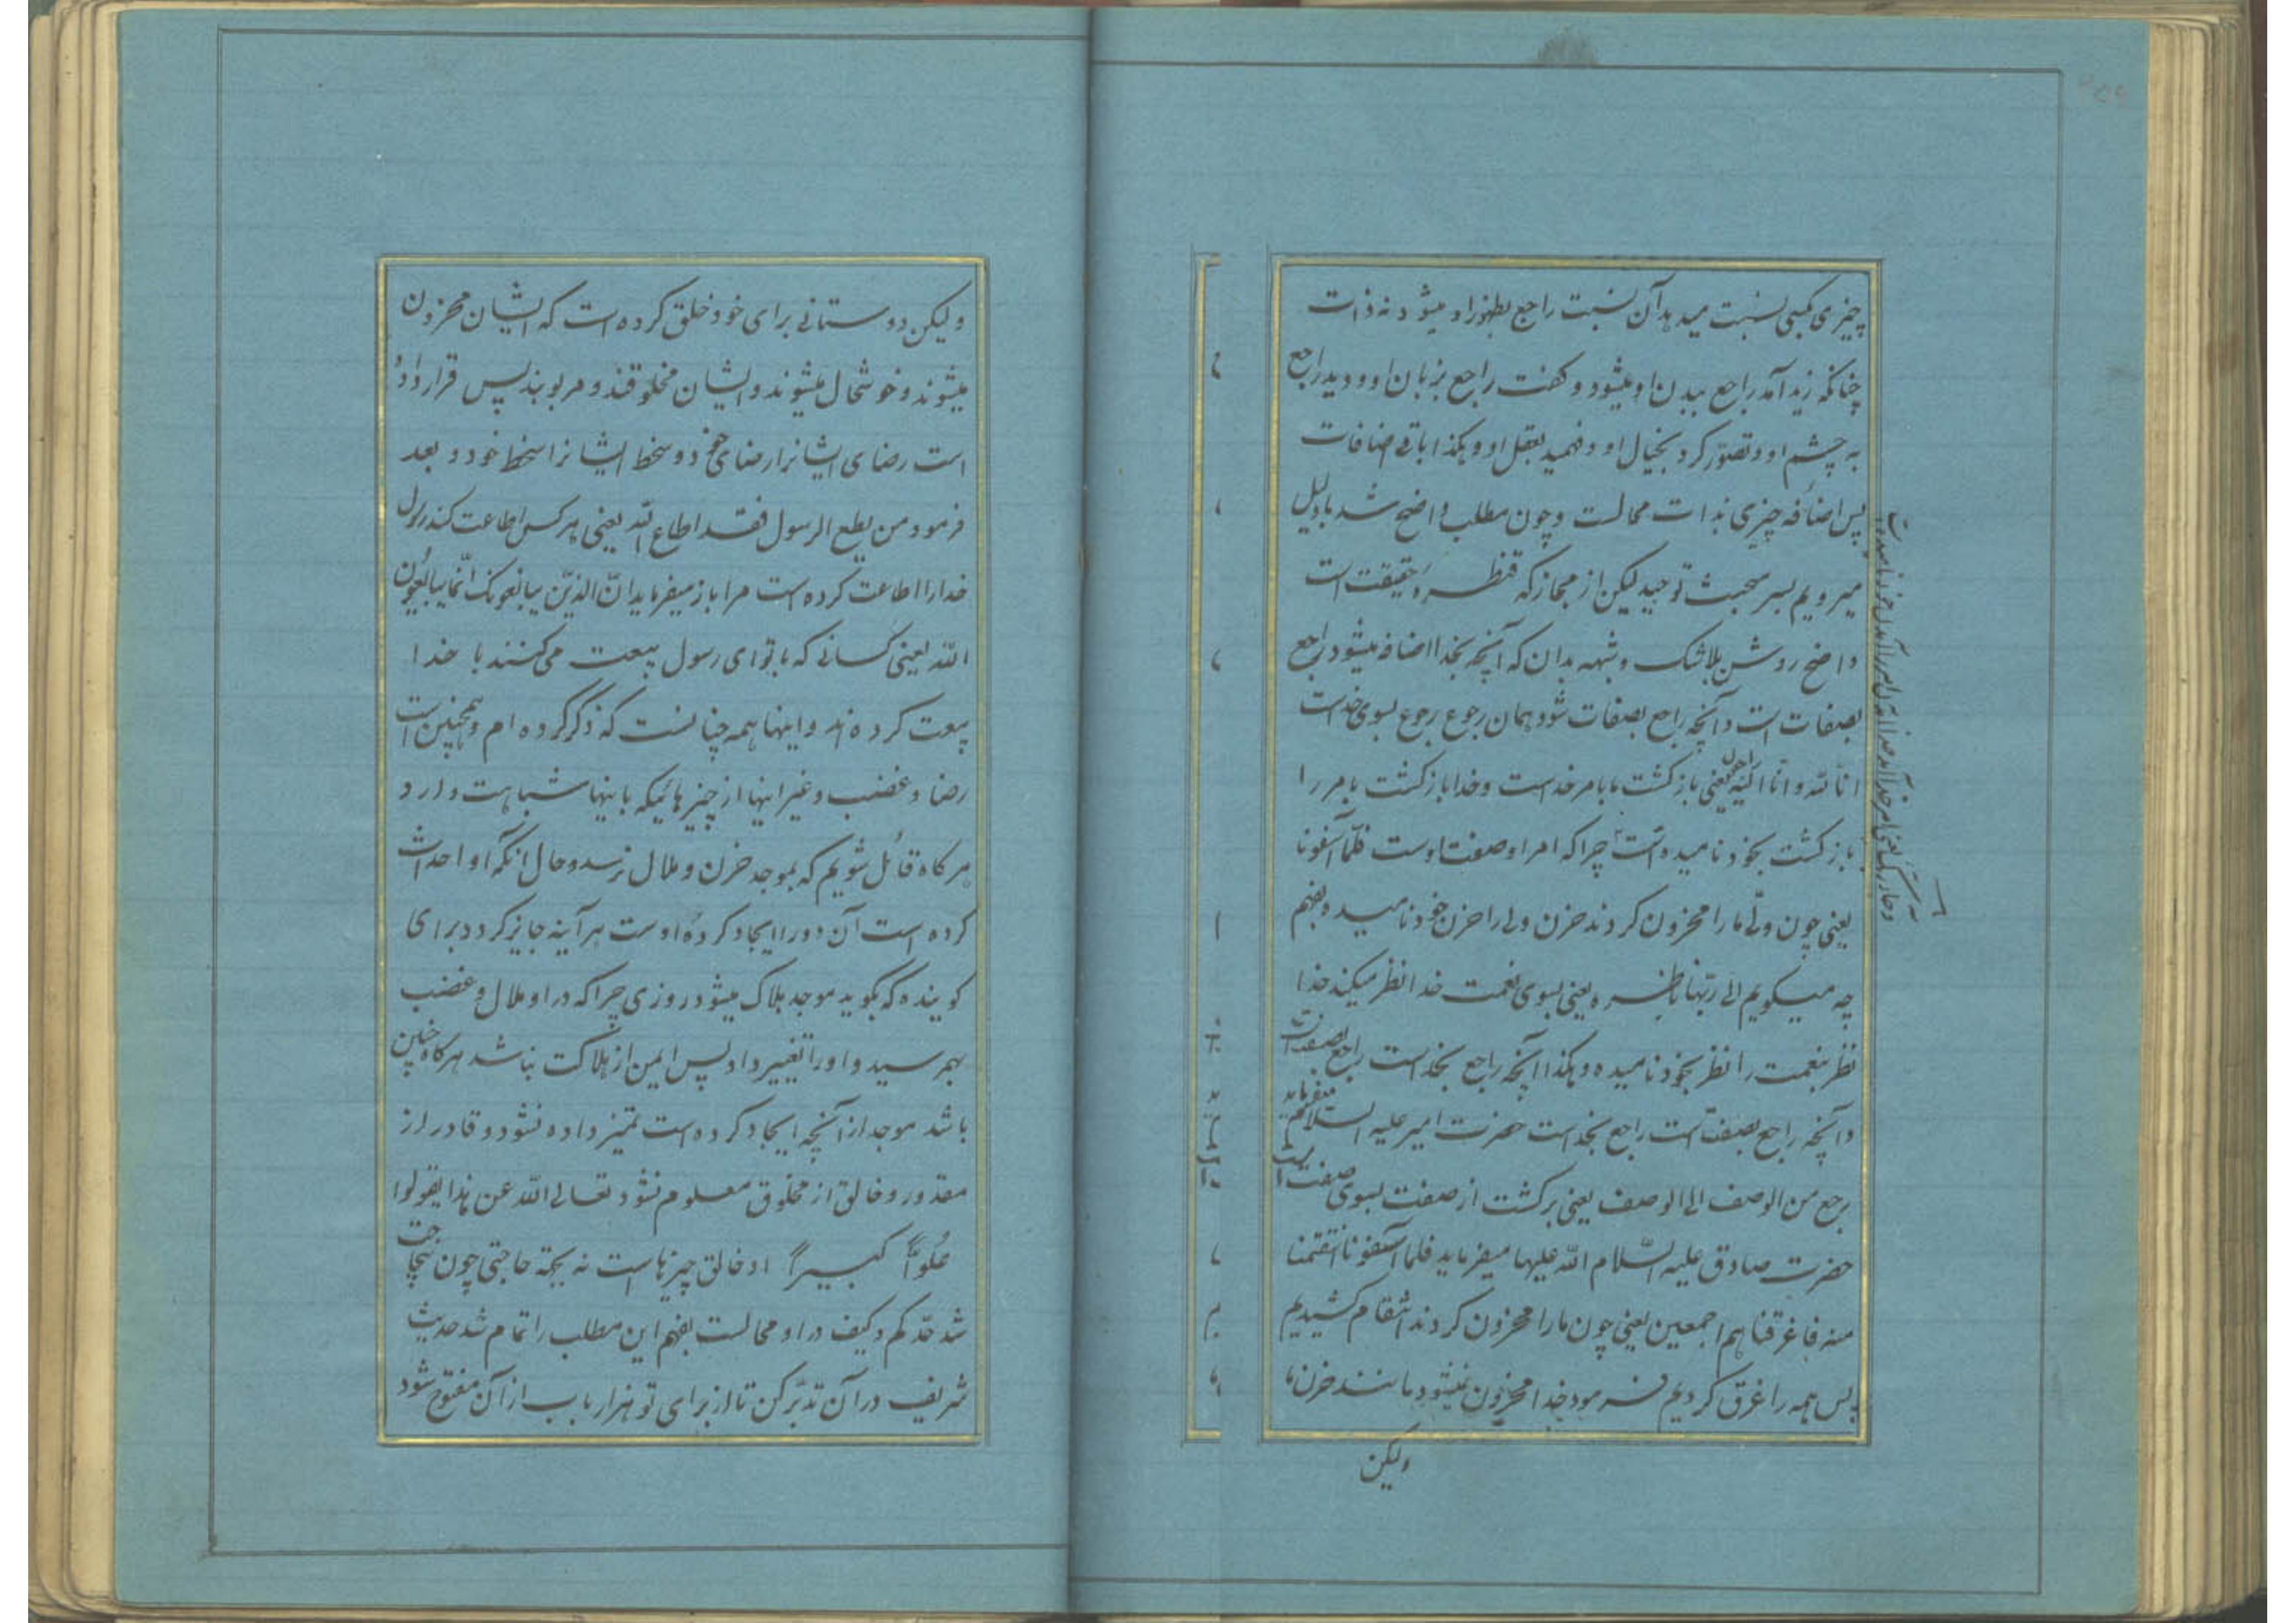 چیزی کمبی نسبت میدهد آن نسبت راجع بظهور او میشود نه ذات
چنانکه زید آمد راجع ببدن او میشود و گفت راجع بزبان او و دید راجع
به چشم او و تصوّر کرد بخیال او و فهمید بعقل او و هکذا باقی اضافات
پس اضافه چیزی بذات محالست و چون مطلب واضح شد با دلیل
میرویم بسر مبحث توحید لیکن از مجاز که قنطره حقیقت است
واضح روشن بلا شک و شبهه بدان که آنچه بخدا اضافه میشود راجع
بصفات است و آنچه راجع بصفات شود همان رجوع رجوع بسوی خداست
انا لله و انّا الیه راجعون یعنی بازگشت ما بامر خداست و خدا بازگشت بامر را
بازگشت بخود نامیده است چرا که امر او صفت اوست فلمّا آسفونا
یعنی چون ولّی ما را محزون کردند حزن ولی را حزن خود نامیده بفهم
چه میگویم الی ربّها ناظره یعنی بسوی نعمت خدا نظر میکند خدا
نظر بنعمت را نظر بخود نامیده و هکذا آنچه راجع بخداست راجع بصفت است
و آنچه راجع بصفت است راجع بخداست حضرت امیر علیه السلام میفرماید
رجع من الوصف الی الوصف یعنی برگشت از صفت بسوی صفت است
حضرت صادق علیه السّلام الله علیها میفرماید فلما آسفونا انتقمنا
منه فاغرقناهم اجمعین یعنی چون ما را محزون کردند انتقام کشیدیم
پس همه را غرق کردیم فرمود خدا محزون نمیشود مانند حزن ما
ولیکن
ولیکن دوستانی برای خود خلق کرده است که ایشان محزون
میشوند و خوشحال میشوند و ایشان مخلوقند و مربوبند پس قرار داده
است رضای ایشانرا رضای خود و سخط ایشانرا سخط خود و بعد
فرمود من یطع الرسول فقد اطاع الله یعنی هر کس اطاعت کند رسول
خدا را اطاعت کرده است مرا باز میفرماید انّ الذیّن یبایعونک انّما یبایعون
الله یعنی کسانی که با تو ای رسول بیعت می کنند با خدا
بیعت کرده‌اند و اینها همه چنانست که ذکر کرده ام و همچنین است
رضا و غضب و غیر اینها از چیزهائیکه باینها شباهت دارد
هر گاه قائل شویم که بموجد حزن و ملال برسد و حال آنکه او احداث
کرده است آن دو را ایجاد کردهٔ اوست هر آینه جایز گردد برای
گوینده که بگوید موجد هلاک میشود روزی چرا که در او ملال و غضب
بهم رسید و او را تغییر داد پس ایمن از هلاکت نباشد هر گاه چنین
باشد موجد از آنچه ایجاد کرده است تمیز داده نشود و قادر از
مقدور و خالق از مخلوق معلوم نشود تعالی الله عن هذا یقولوا
عُلُوّاً کبیراً او خالق چیزهاست نه بجهة حاجتی چون بیحاجت
شد حدّ کم و کیف در او محالست بفهم این مطلب را تمام شد حدیث
شریف در آن تدبّر کن تا از برای تو هزار باب از آن مفتوح شود